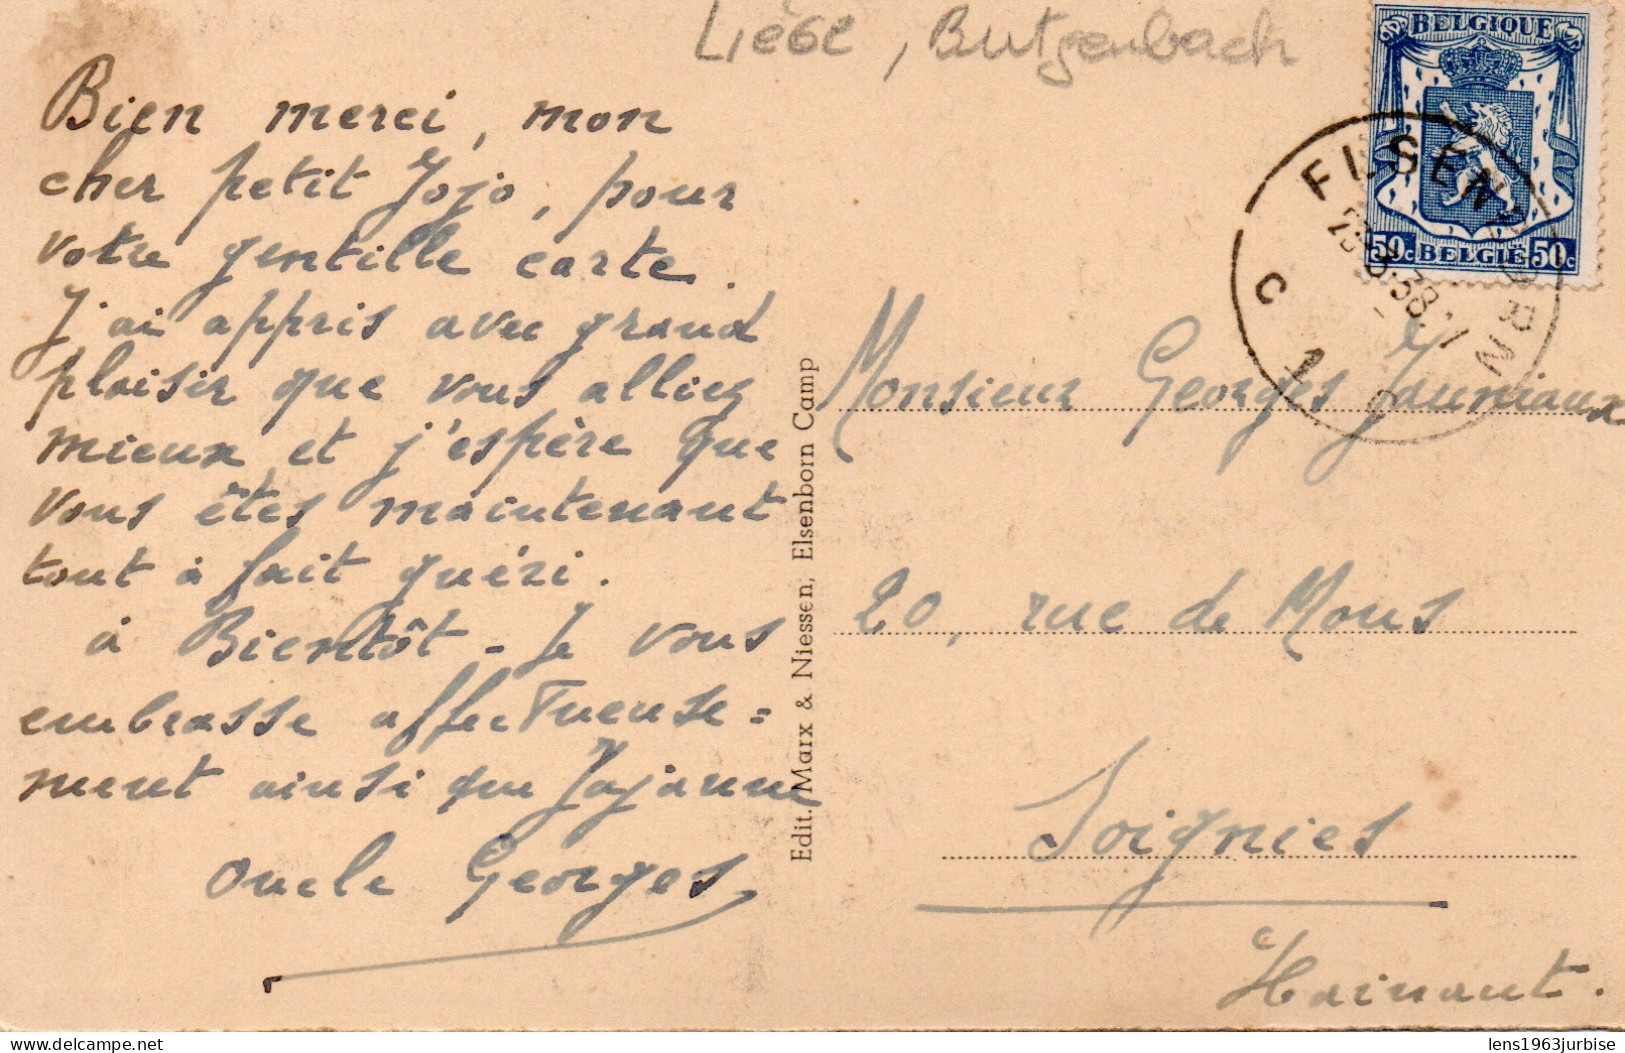 Liège, Butgenbach
BELGIQUE
50c BELGIE 50c
ELSENBORN
C 1 C
Bien merci, mon
cher petit Jojo, pour
votre gentille carte.
J'ai appris avec grand
plaisir que vous alliez
mieux et j'espère que
vous êtes maintenant
tout à fait guéri.
à Bientôt - Je vous
embrasse affectueuse=
ment ainsi que Jojanne
Oncle Georges
Edit. Marx & Niessen, Elsenborn Camp
Monsieur Georges Jauniaux
20, rue de Mons
Soignies
Hainaut.
delcampe.net
lens1963jurbise